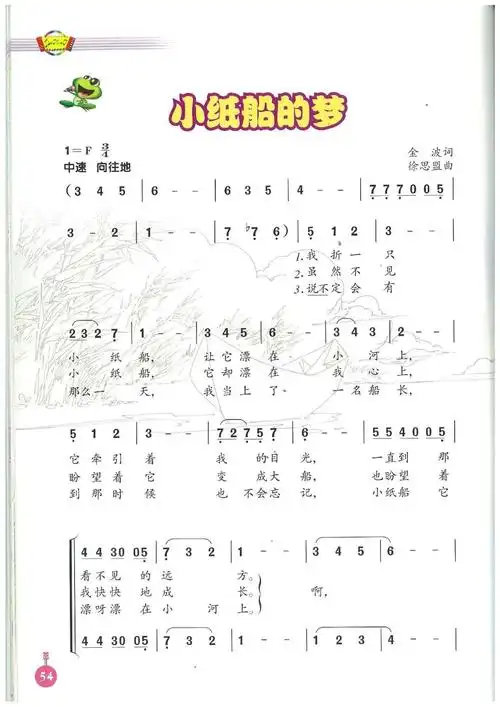 小纸船的梦
1=F 3/4
金波词
中速 向往地
徐思盟曲
( 3 4 5 | 6 - - | 6 3 5 | 4 - - | 7 7 7 0 0 5 |
3 - 2 | 1 - - | 7 - ♭7 | 7 6 ) | 5 1 2 | 3 - - |
1.我折一只
2.虽然不见
3.说不定会有
2 3 2 7 | 1 - - | 3 4 5 | 1 - - | 3 4 3 | 2 - - |
小纸船, 让它漂在 小河上,
小纸船, 它却漂在 我心上,
那么一天, 我当上了 一名船长,
5 1 2 | 3 - - | 7 2 7 5 7 | 6 - - | 5 5 4 0 0 5 |
它牵引着 我的目光, 一直到那
盼望着它 变成大船, 也盼望着
到那时候 也不会忘记, 小纸船它
4 4 3 0 0 5 | 7 3 2 | 1 - - | 3 4 5 | 6 - - |
看不见的远方。 啊,
我快快地成长。
漂呀漂在小河上。
4 4 3 0 0 5 | 7 3 2 | 1 - - | 1 - - | 3 4 3 |
54